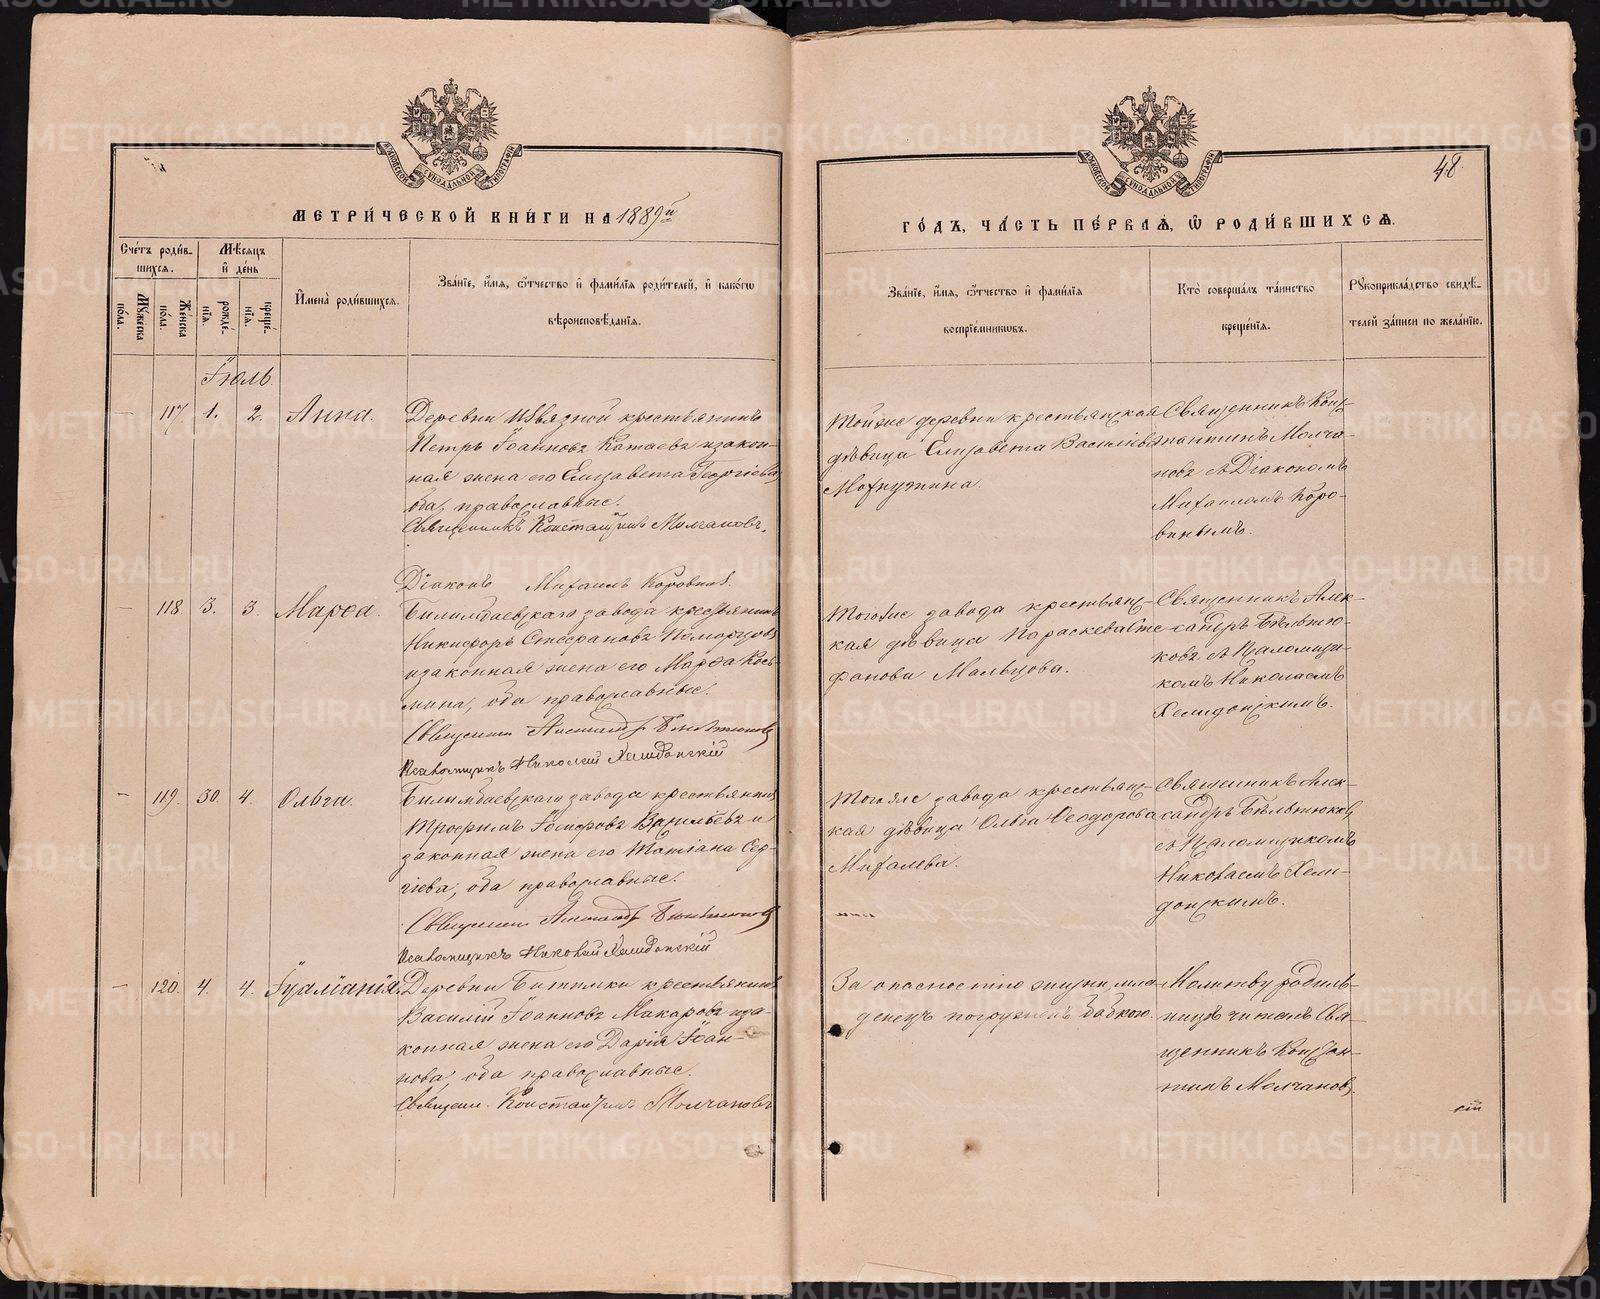 МЕТРИ́ЧЕСКОЙ КНИ́ГИ НА 1889й
ГО́ДЪ, ЧА́СТЬ ПЕ́РВАѦ, Ѡ РОДИ́ВШИХСѦ.
48.
Сче́тъ роди́в-
шихсѧ.
Мѣ́сѧцъ
и҆ де́нь
Мꙋ́жеска
по́ла.
Же́нска
по́ла.
рожде́-
нїѧ.
креще́-
нїѧ.
И҆мена̀ роди́вшихсѧ.
Зва́нїе, и҆́мѧ, ѻ҆́тчество и҆ фами́лїѧ роди́телей, и҆ како́гѡ
вѣроисповѣ́данїѧ.
Зва́нїе, и҆́мѧ, ѻ҆́тчество и҆ фами́лїѧ
воспрїе́мникѡвъ.
Кто̀ соверша́лъ та́инство
креще́нїѧ.
Рꙋкоприкла́дство свидѣ́-
телей за́писи по жела́нїю.
Іюль.
117. 1. 2. Анна.
Деревни Извязной крестьянинъ
Петръ Іоанновъ Катаевъ и закон-
ная жена его Елизавета Георгіева,
оба православные.
Священникъ Константинъ Молчановъ.
Діаконъ Михаилъ Коровинъ.
Той же деревни крестьянская
дѣвица Елизавета Васильева
Махнутина.
Священникъ Конс-
тантинъ Молча-
новъ съ Діакономъ
Михаиломъ Коро-
винымъ.
118 3. 3. Марѳа.
Билимбаевскаго завода крестьянинъ
Никифоръ Стефановъ Поморцовъ
и законная жена его Марѳа Кось-
мина, оба православные.
Священникъ Александръ Бѣльтюковъ
Псаломщикъ Николай Хелидонскій
Того же завода крестьянс-
кая дѣвица Параскева Сте-
фанова Мальцова.
Священникъ Алек-
сандръ Бѣльтю-
ковъ съ Псаломщи-
комъ Николаемъ
Хелидонскимъ.
119. 30. 4. Ольга.
Билимбаевскаго завода крестьянинъ
Трофимъ Іосифовъ Васильевъ и
законная жена его Татіана Сер-
гіева, оба православные.
Священникъ Александръ Бѣльтюковъ
Псаломщикъ Николай Хелидонскій
Того же завода крестьянс-
кая дѣвица Ольга Ѳеодорова
Михалева.
Священникъ Алек-
сандръ Бѣльтюковъ
съ Псаломщикомъ
Николаемъ Хели-
донскимъ.
120. 4. 4. Іуліанія.
Деревни Битимки крестьянинъ
Василій Іоанновъ Макаровъ и за-
конная жена его Дарія Іоан-
нова, оба православные.
Священ. Константинъ Молчановъ
За опасностію жизни мла-
денецъ погруженъ бабкою.
Молитву родиль-
ницѣ читалъ Свя-
щенникъ Констан-
тинъ Молчановъ.